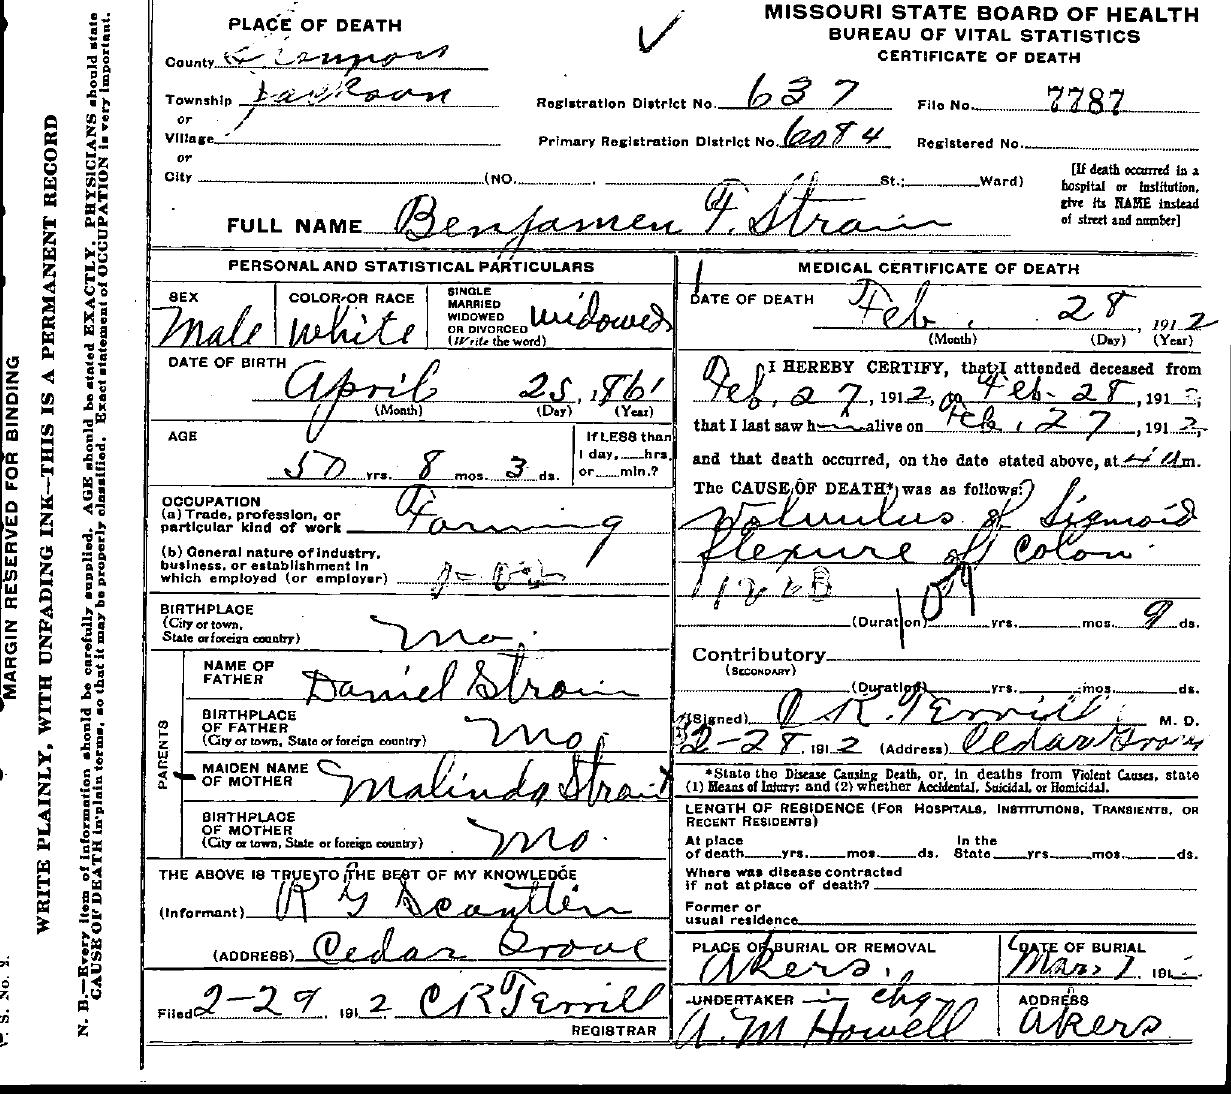 MISSOURI STATE BOARD OF HEALTH
BUREAU OF VITAL STATISTICS
CERTIFICATE OF DEATH
PLACE OF DEATH
County Shannon
Township Jackson
or
Village
or
City (NO. St.; Ward)
Registration District No. 637
File No. 7787
Primary Registration District No. 6084
Registered No.
[If death occurred in a
hospital or institution,
give its NAME instead
of street and number]
FULL NAME Benjamen F. Strain
PERSONAL AND STATISTICAL PARTICULARS
SEX
Male
COLOR OR RACE
White
SINGLE
MARRIED
WIDOWED
OR DIVORCED
(Write the word)
Widowed
DATE OF BIRTH
April 25, 1861
(Month) (Day) (Year)
AGE
50 yrs. 8 mos. 3 ds.
If LESS than
1 day, hrs.
or min.?
OCCUPATION
(a) Trade, profession, or
particular kind of work Farming
(b) General nature of industry,
business, or establishment in
which employed (or employer)
BIRTHPLACE
(City or town,
State or foreign country) Mo.
PARENTS
NAME OF
FATHER Daniel Strain
BIRTHPLACE
OF FATHER
(City or town, State or foreign country) Mo.
MAIDEN NAME
OF MOTHER Malinda Strain
BIRTHPLACE
OF MOTHER
(City or town, State or foreign country) Mo.
THE ABOVE IS TRUE TO THE BEST OF MY KNOWLEDGE
(Informant) R G Scantlin
(ADDRESS) Cedar Grove
Filed 2-29, 1912 C R Terrill
REGISTRAR
MEDICAL CERTIFICATE OF DEATH
DATE OF DEATH
Feb. 28, 1912
(Month) (Day) (Year)
I HEREBY CERTIFY, that I attended deceased from
Feb. 27, 1912, Feb. 28, 191
that I last saw h alive on Feb. 27, 1912,
and that death occurred, on the date stated above, at 4 a m.
The CAUSE OF DEATH* was as follows:
Volvulus of Sigmoid
flexure of Colon.
109
(Duration) yrs. mos. 9 ds.
Contributory
(SECONDARY)
(Duration) yrs. mos. ds.
(Signed) C R. Terrill M. D.
2-28, 1912 (Address) Cedar Grove
*State the Disease Causing Death, or, in deaths from Violent Causes, state
(1) Means of Injury; and (2) whether Accidental, Suicidal, or Homicidal.
LENGTH OF RESIDENCE (FOR HOSPITALS, INSTITUTIONS, TRANSIENTS, OR
RECENT RESIDENTS)
At place
of death yrs. mos. ds.
In the
State yrs. mos. ds.
Where was disease contracted
if not at place of death?
Former or
usual residence
PLACE OF BURIAL OR REMOVAL
Akers.
DATE OF BURIAL
Mar. 1 191
UNDERTAKER in chg
A. M Howell
ADDRESS
Akers
MARGIN RESERVED FOR BINDING
WRITE PLAINLY, WITH UNFADING INK—THIS IS A PERMANENT RECORD
N. B—Every item of information should be carefully supplied. AGE should be stated EXACTLY. PHYSICIANS should state
CAUSE OF DEATH in plain terms, so that it may be properly classified. Exact statement of OCCUPATION is very important.
S. No. 2.